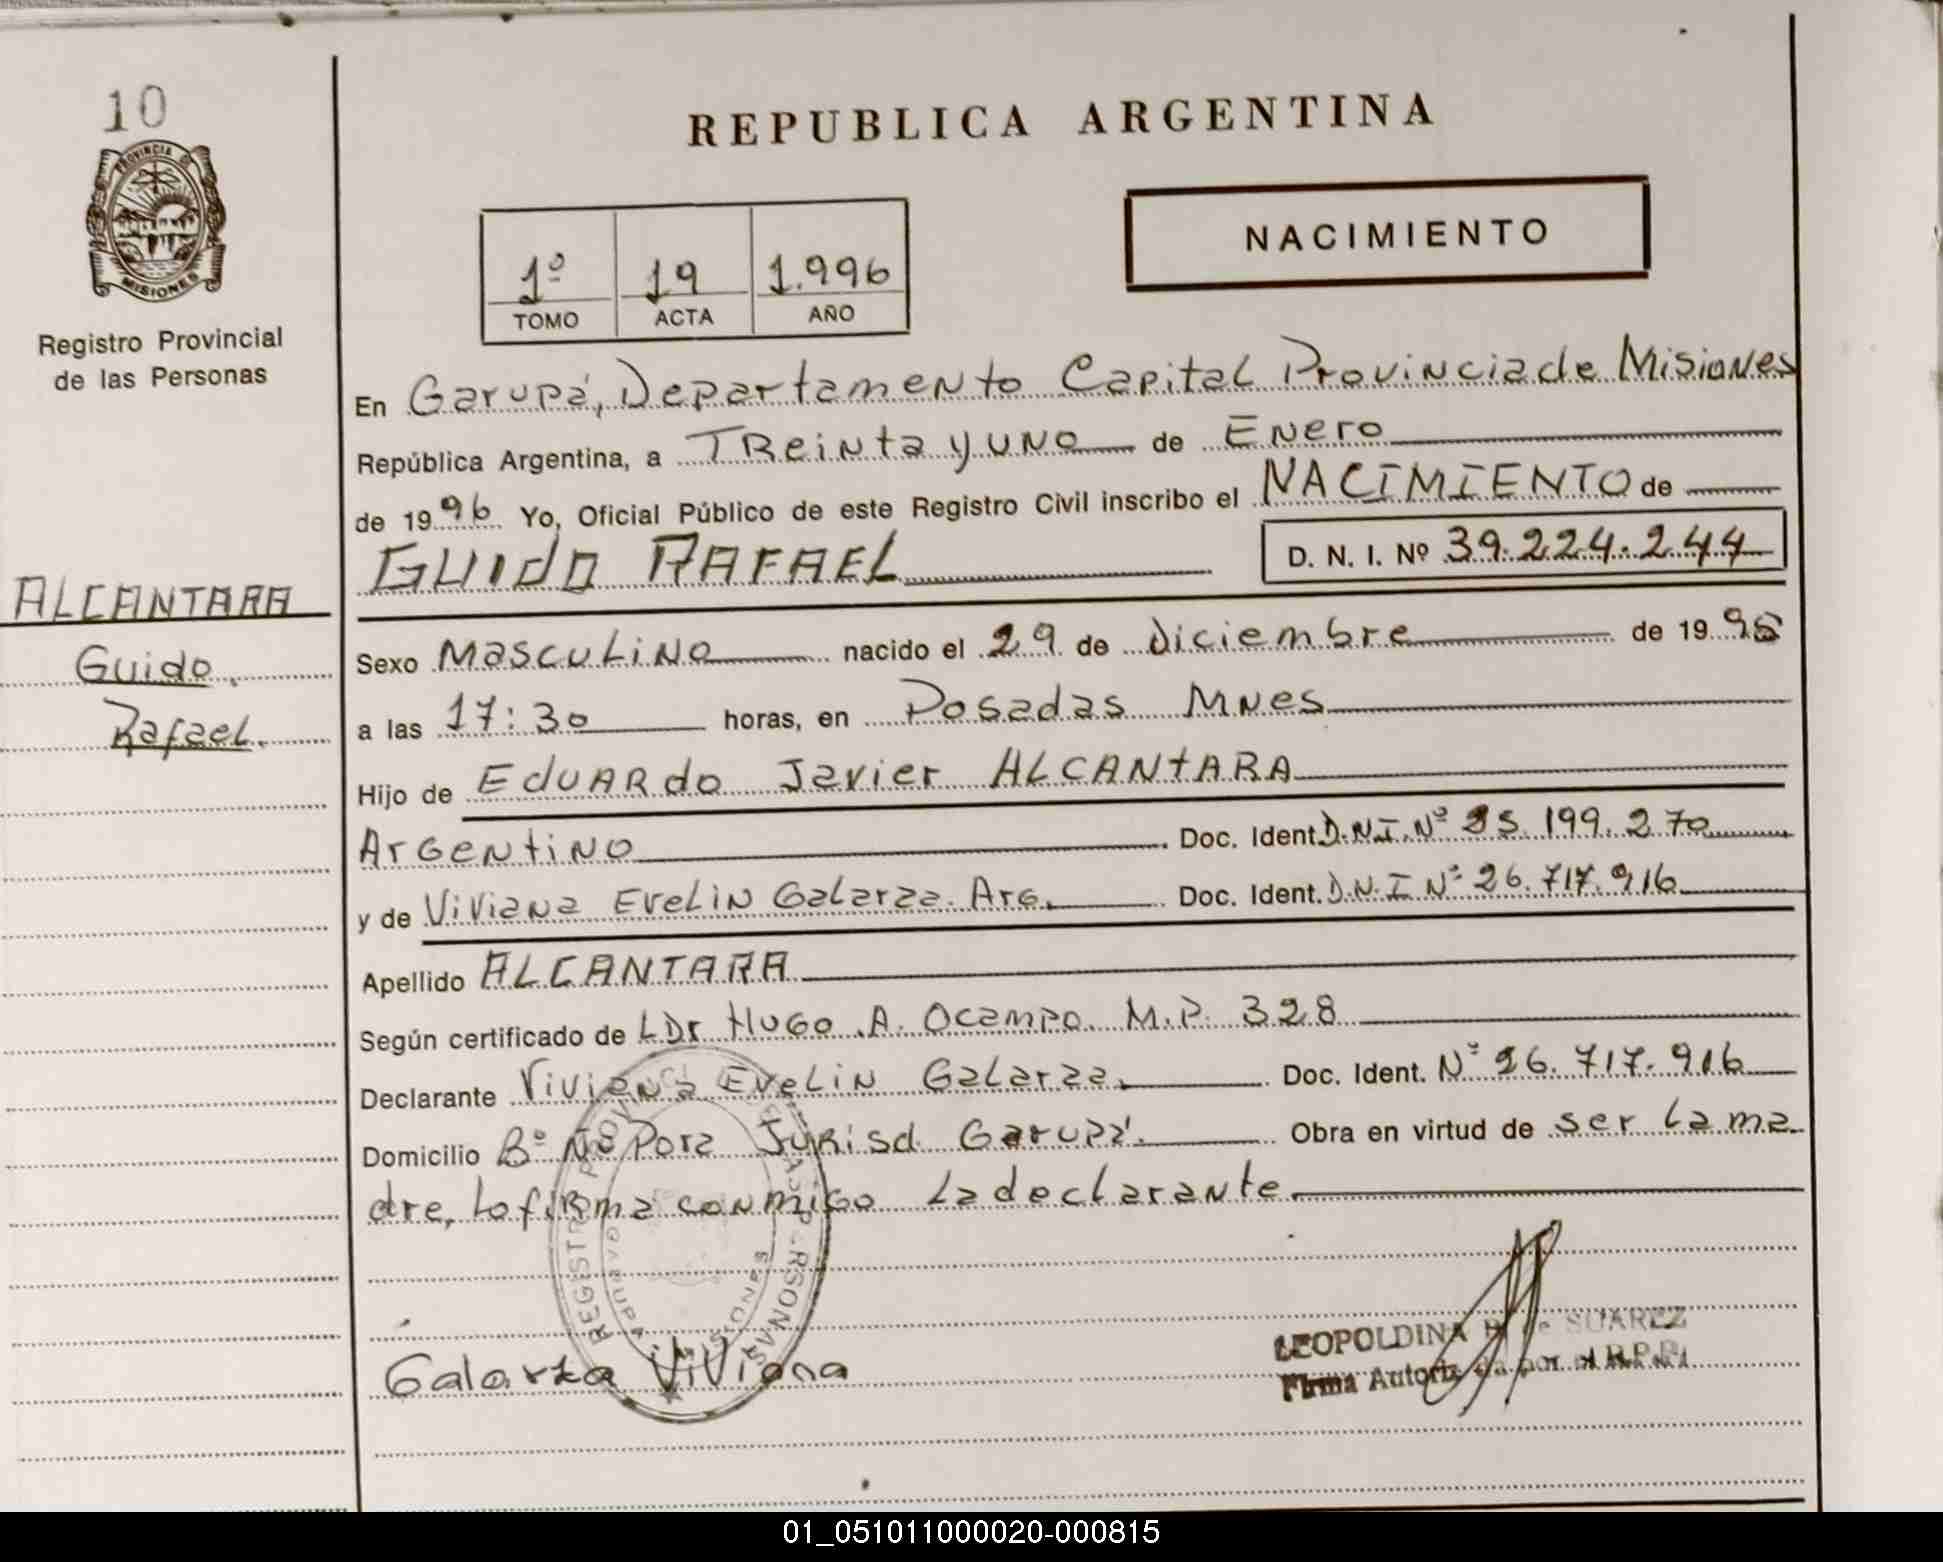 10
REPUBLICA ARGENTINA
PROVINCIA DE
MISIONES
Registro Provincial
de las Personas
1º 19 1.996
TOMO ACTA AÑO
NACIMIENTO
En Garupá, Departamento Capital Provincia de Misiones
República Argentina, a Treinta y uno de Enero
de 1996 Yo, Oficial Público de este Registro Civil inscribo el NACIMIENTO de
GUIDO RAFAEL D. N. I. Nº 39.224.244
ALCANTARA
Guido
Rafael.
Sexo Masculino nacido el 29 de diciembre de 1995
a las 17:30 horas, en Posadas Mnes
Hijo de Eduardo Javier ALCANTARA
Argentino Doc. Ident. D.N.I. Nº 25.199.270
y de Viviana Evelin Galarza. Arg. Doc. Ident. D.N.I Nº 26.717.916
Apellido ALCANTARA
Según certificado de L Dr Hugo A. Ocampo M.P. 328
Declarante Viviana Evelin Galarza. Doc. Ident. Nº 26.717.916
Domicilio Bº Ñu Pora Jurisd. Garupá. Obra en virtud de ser la ma
dre, lo firma conmigo La declarante
REGISTRO PROVINCIAL DE LAS PERSONAS
MISIONES
Galarza Viviana
LEOPOLDINA de SUAREZ
Firma Autorizada por el R.P.P.
01_051011000020-000815